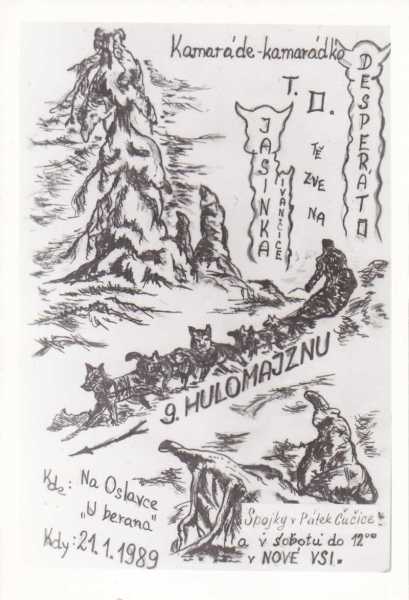 Kamaráde-kamarádko
T. O.
DESPERATO
JASINKA
IVANČICE
TĚ
ZVE
NA
9. HULOMAJZNU
Kde: Na Oslavce
„U berana"
Kdy: 21.1.1989
Spojky v Pátek Čučice
a v sobotu do 12⁰⁰
v NOVÉ VSI.